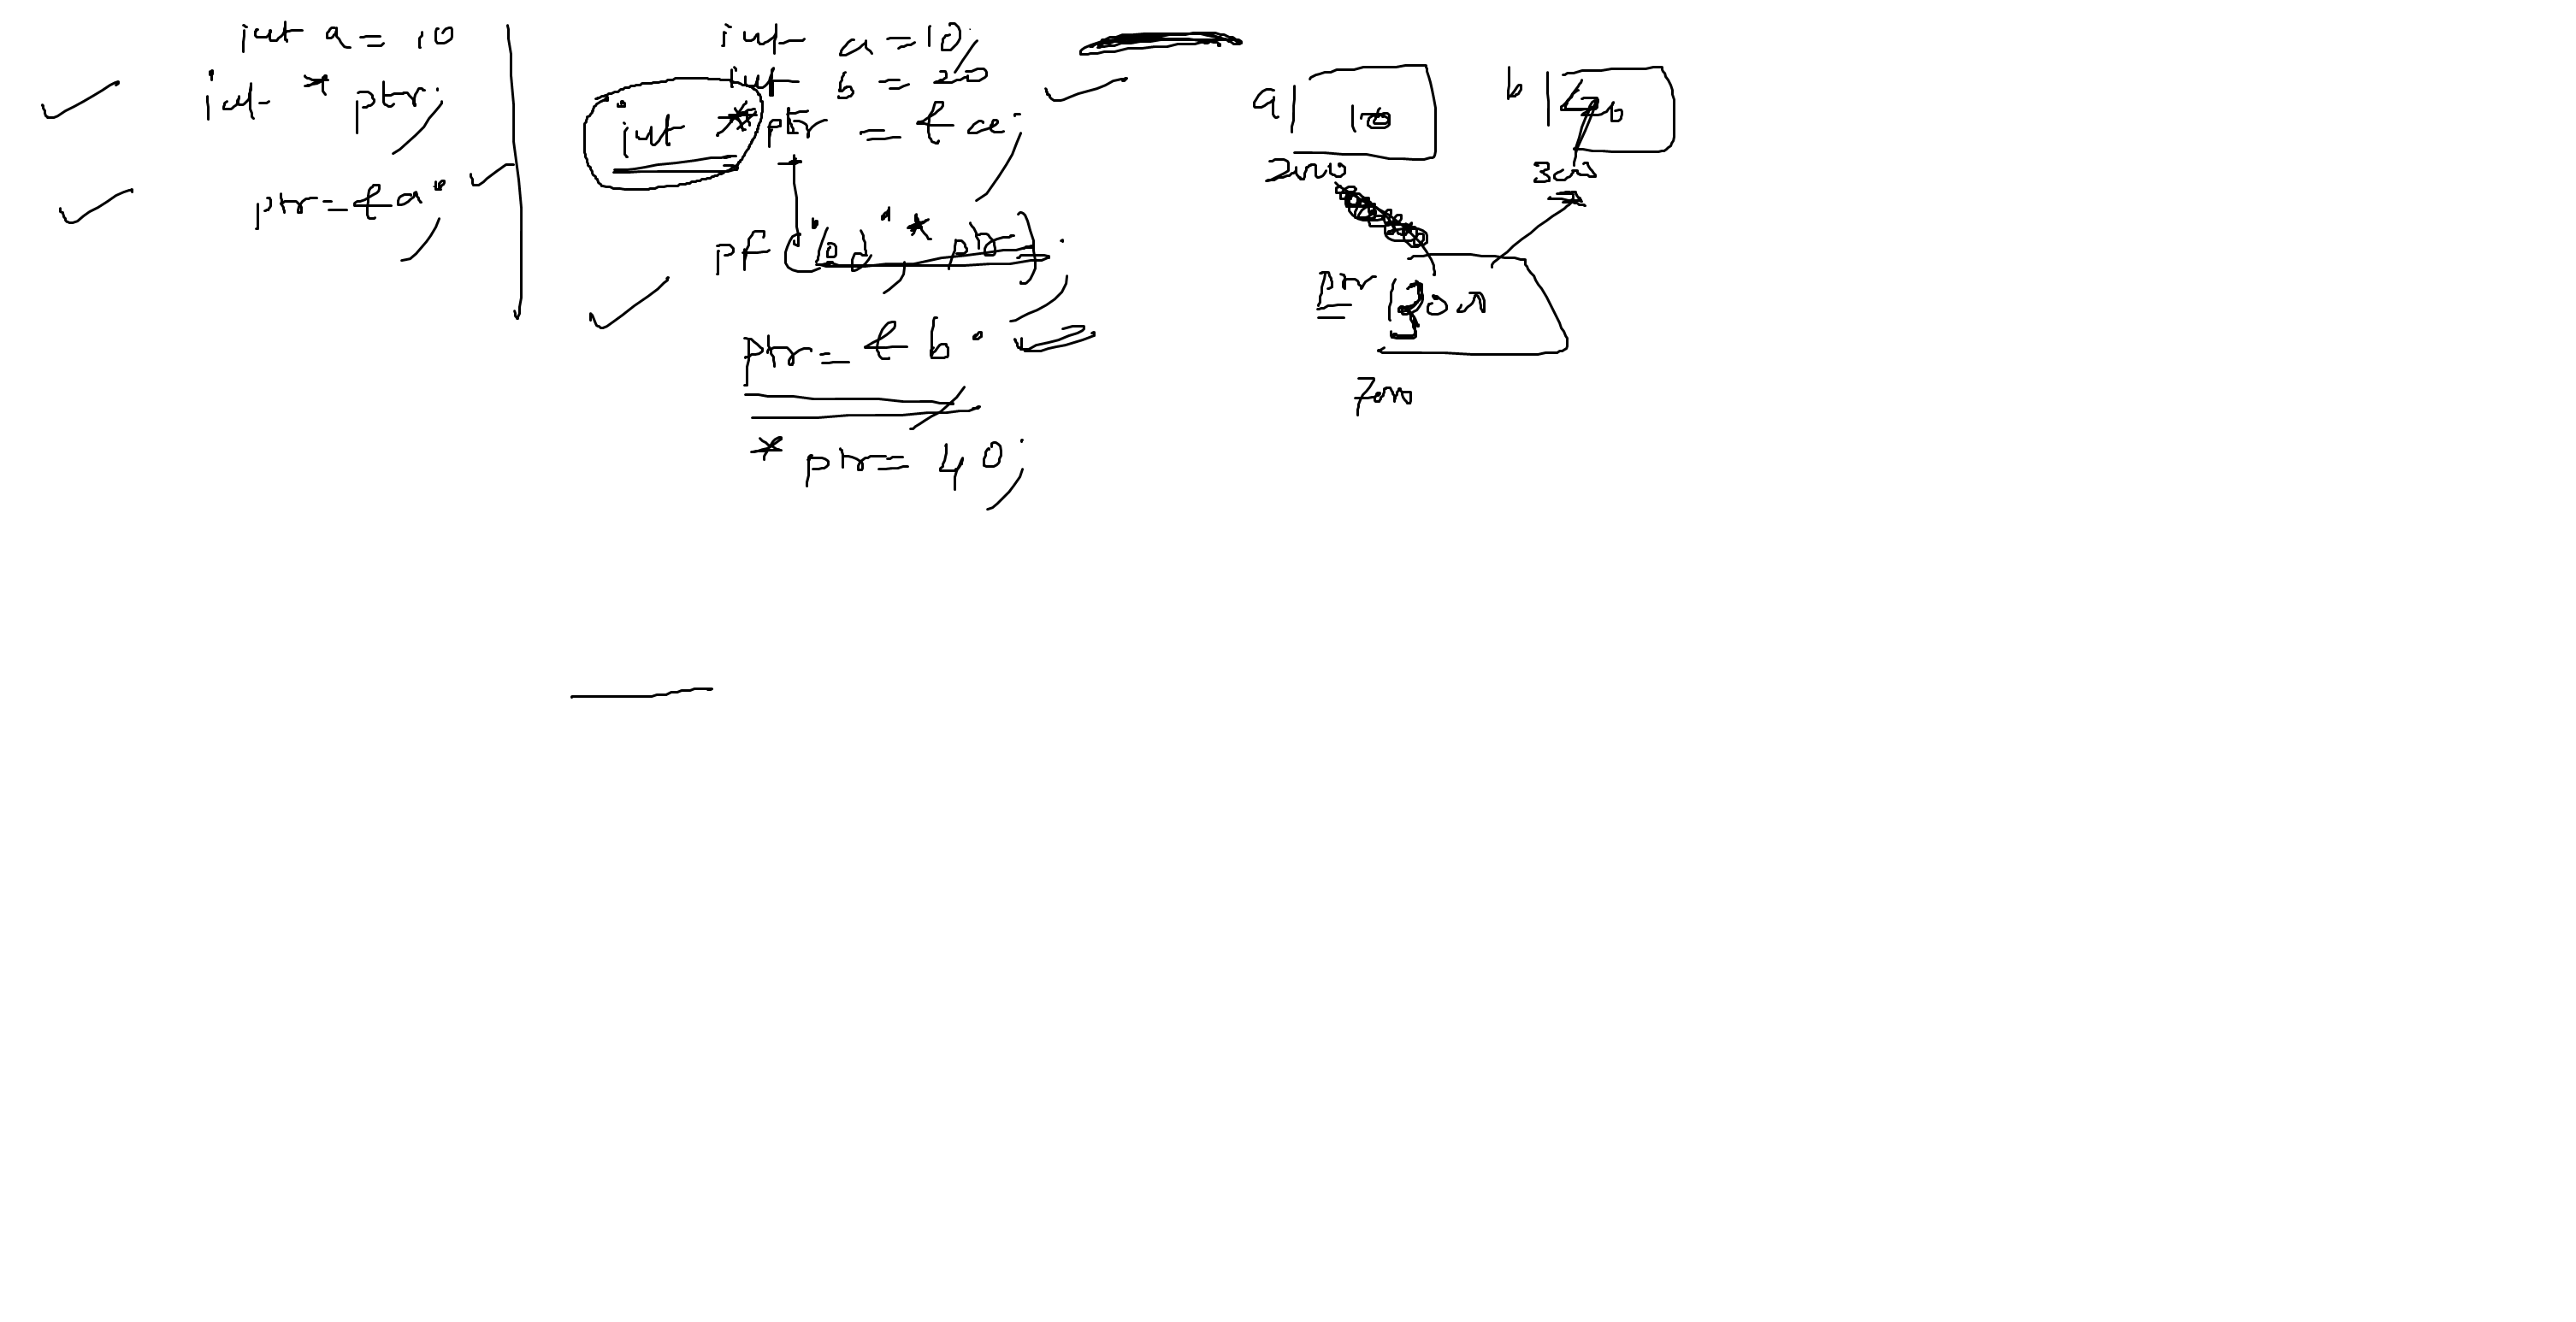 int a = 10
int * ptr;
ptr = & a;
int a = 10;
int b = 20
int * ptr = & a;
pf ("%d", * ptr);
ptr = & b;
* ptr = 40;
a 10
2000
b 40
3000
ptr 3000
7000